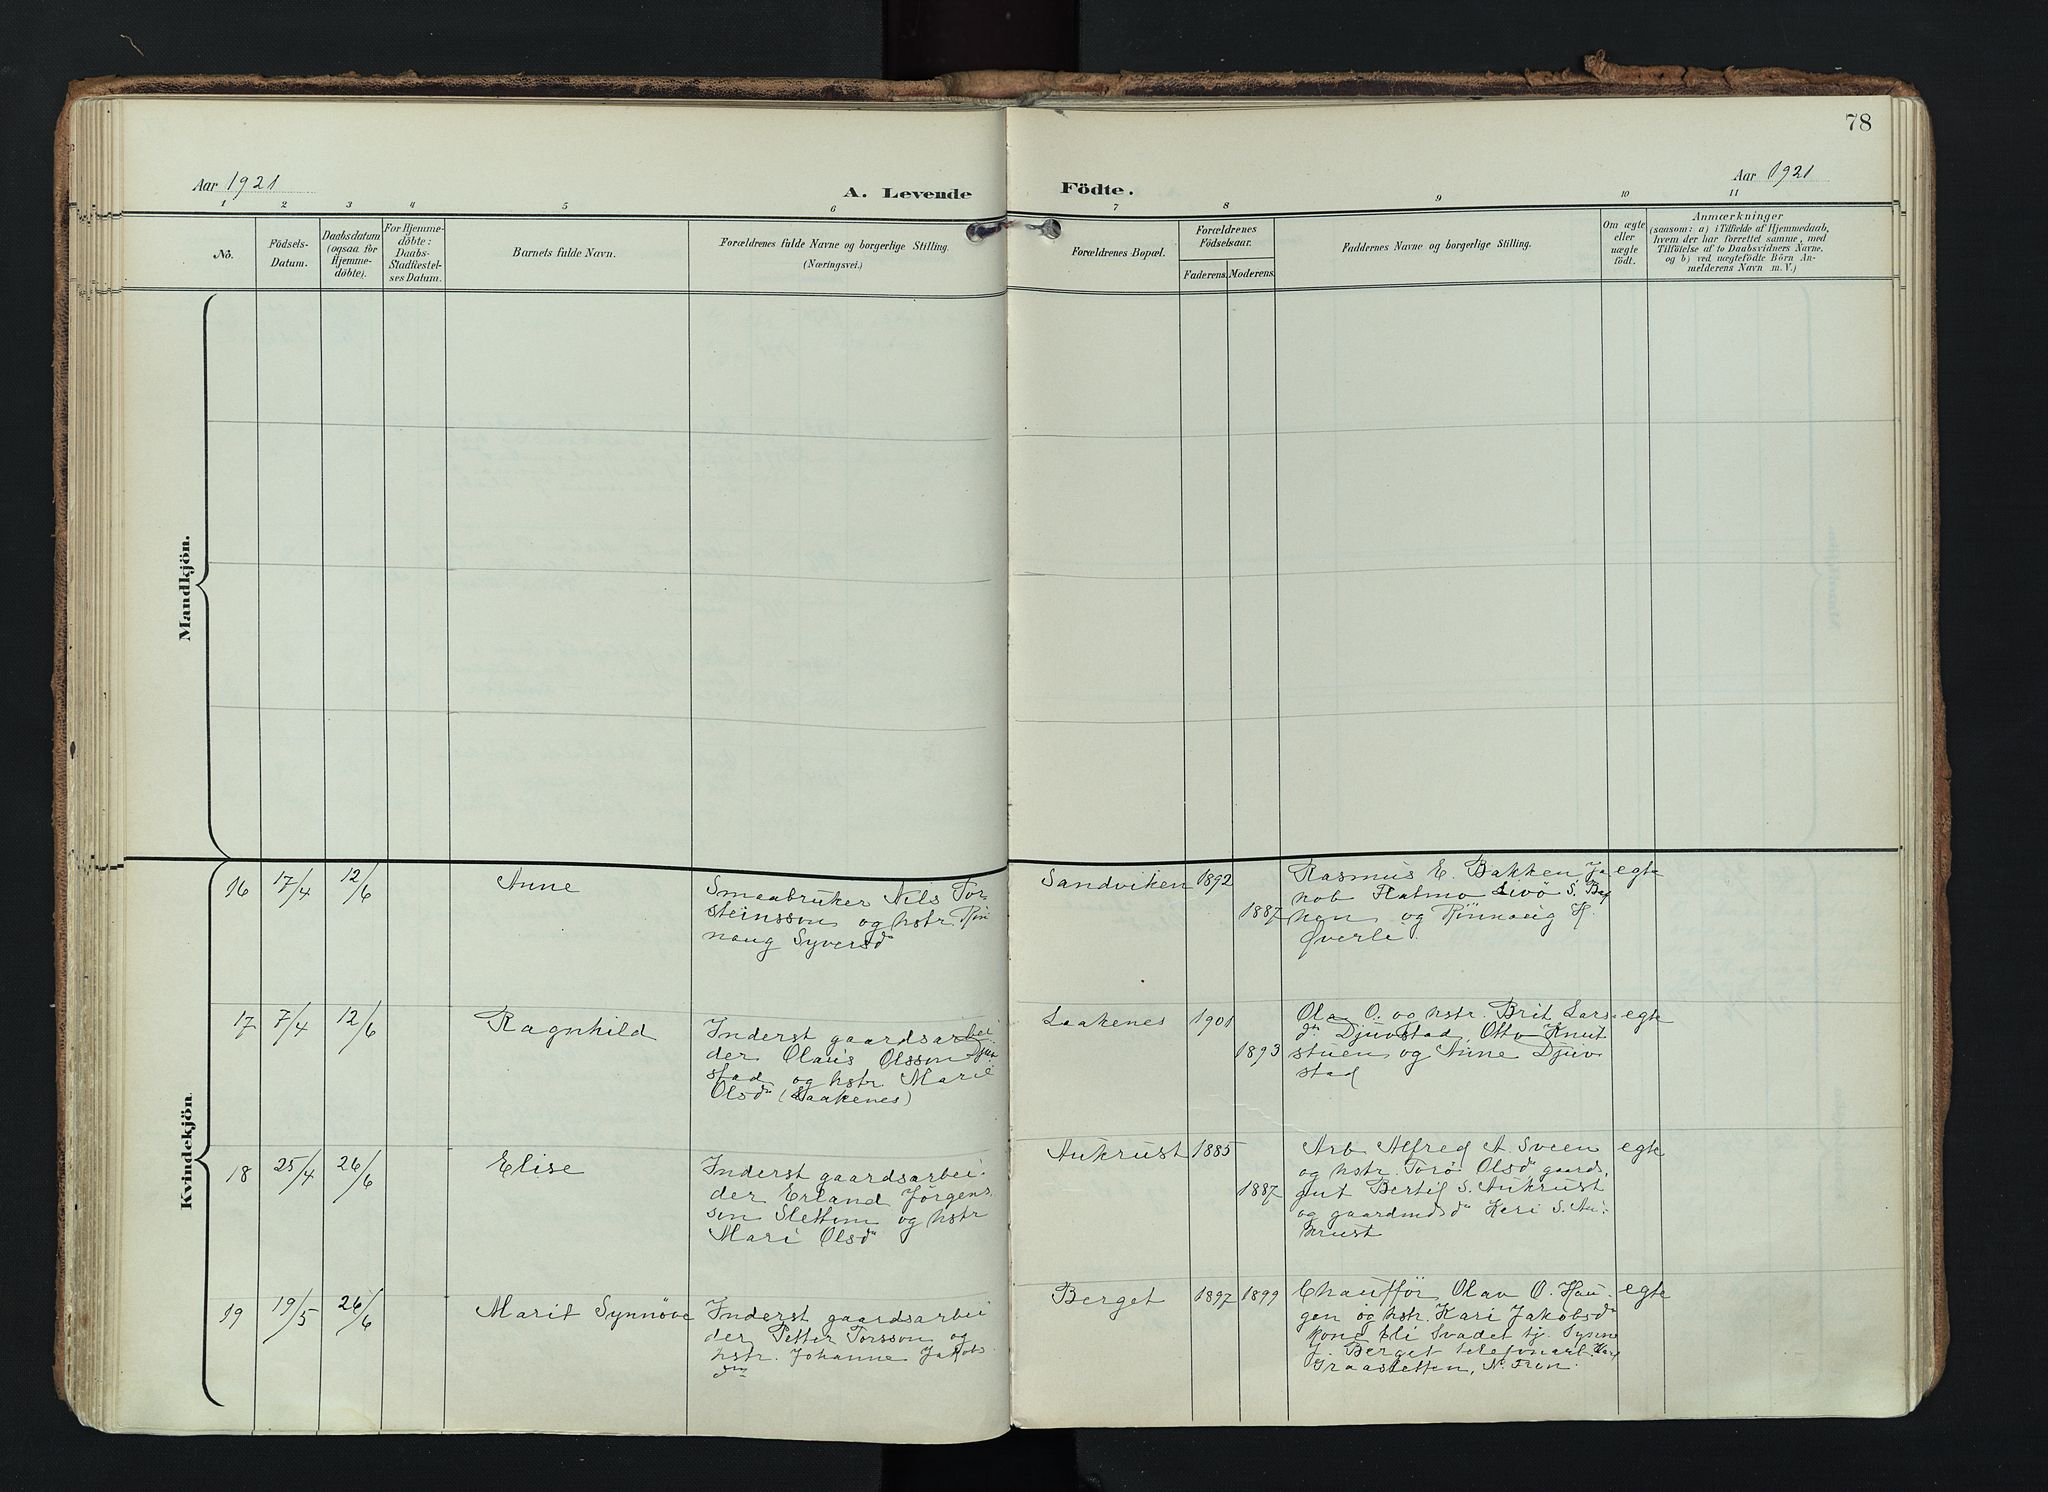 78
Aar 1921
A. Levende
Födte.
Aar 1921
1 2 3 4 5 6 7 8 9 10 11
Nö.
Födsels-
Datum.
Daabsdatum
(ogsaa for
Hjemme-
döbte).
For Hjemme-
döbte:
Daabs-
Stadfæstel-
ses Datum.
Barnets fulde Navn.
Forældrenes fulde Navne og borgerlige Stilling.
(Næringsvei.)
Forældrenes Bopæl.
Forældrenes
Födselsaar.
Faderens. Moderens.
Faddernes Navne og borgerlige Stilling.
Om ægte
eller
uægte
födt.
Anmærkninger
(saasom: a) i Tilfælde af Hjemmedaab,
hvem der har forrettet samme, med
Tilföielse af to Daabsvidners Navne.
og b) ved uægtefödte Börn An-
melderens Navn m. V.)
Mandkjön.
Kvindekjön.
16 17/4 12/6 Anne
Smaabruker Nils Tor
steinsson og hstr. Røn
naug Syversdr
Sandviken 1892
1887
Rasmus E. Bakken Ja
kob Flatmo S. Bak
ken og Rønnaug H.
Øverli.
egte
17 7/4 12/6 Ragnhild
Inderst gaardsarbei
der Olaus Olsson Djuv
stad og hstr. Marie
Olsdr (Laakenes)
Laakenes 1901
1893
Ola O. og hstr. Brit Lars
dr Djuvstad, Otto Knut
stuen og Anne Djuv
stad
egte
18 25/4 26/6 Elise
Inderst gaardsarbei-
der Erland Jørgens
son Slettom og hstr
Mari Olsdr
Aukrust 1885
1887
Arb Alfred A. Sveen
og hstr. Torø Olsdr gaards
gut Bertil S. Aukrust
og gaardmdsdr Kari S. Au-
krust
egte
19 19/5 26/6 Marit Synnøve
Inderst gaardsarbei
der Petter Torsson og
hstr. Johanne Jakobs
dtr
Berget 1897 1899
Chauffør Olav O. Hau
gen og hstr. Kari Jakobsdr
kone Eli Svadet tj. Synne
J. Berget telefonarb.
Graasletten, N. Fron.
egte